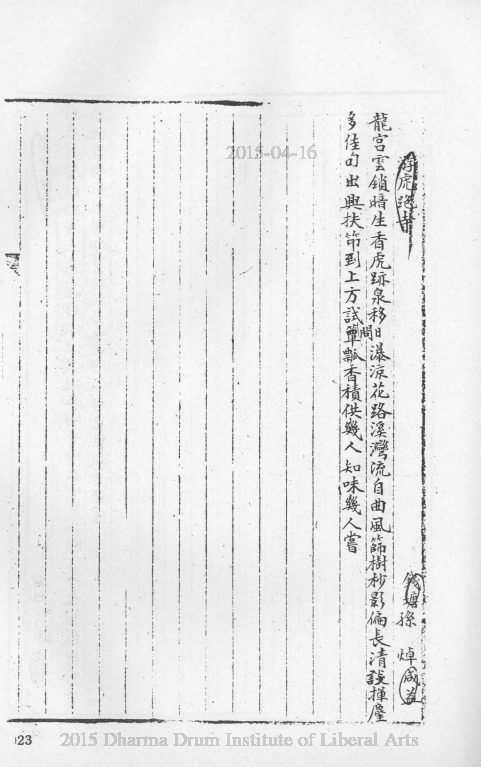 游虎跑寺
錢塘孫 焯咸益
龍宮雲鎖暗生香虎跡泉移日瀑涼花路溪灣流自曲風篩樹杪影偏長清談揮麈
多佳句出興扶笻到上方試問簞瓢香積供幾人知味幾人嘗
2015-04-16
023 2015 Dharma Drum Institute of Liberal Arts